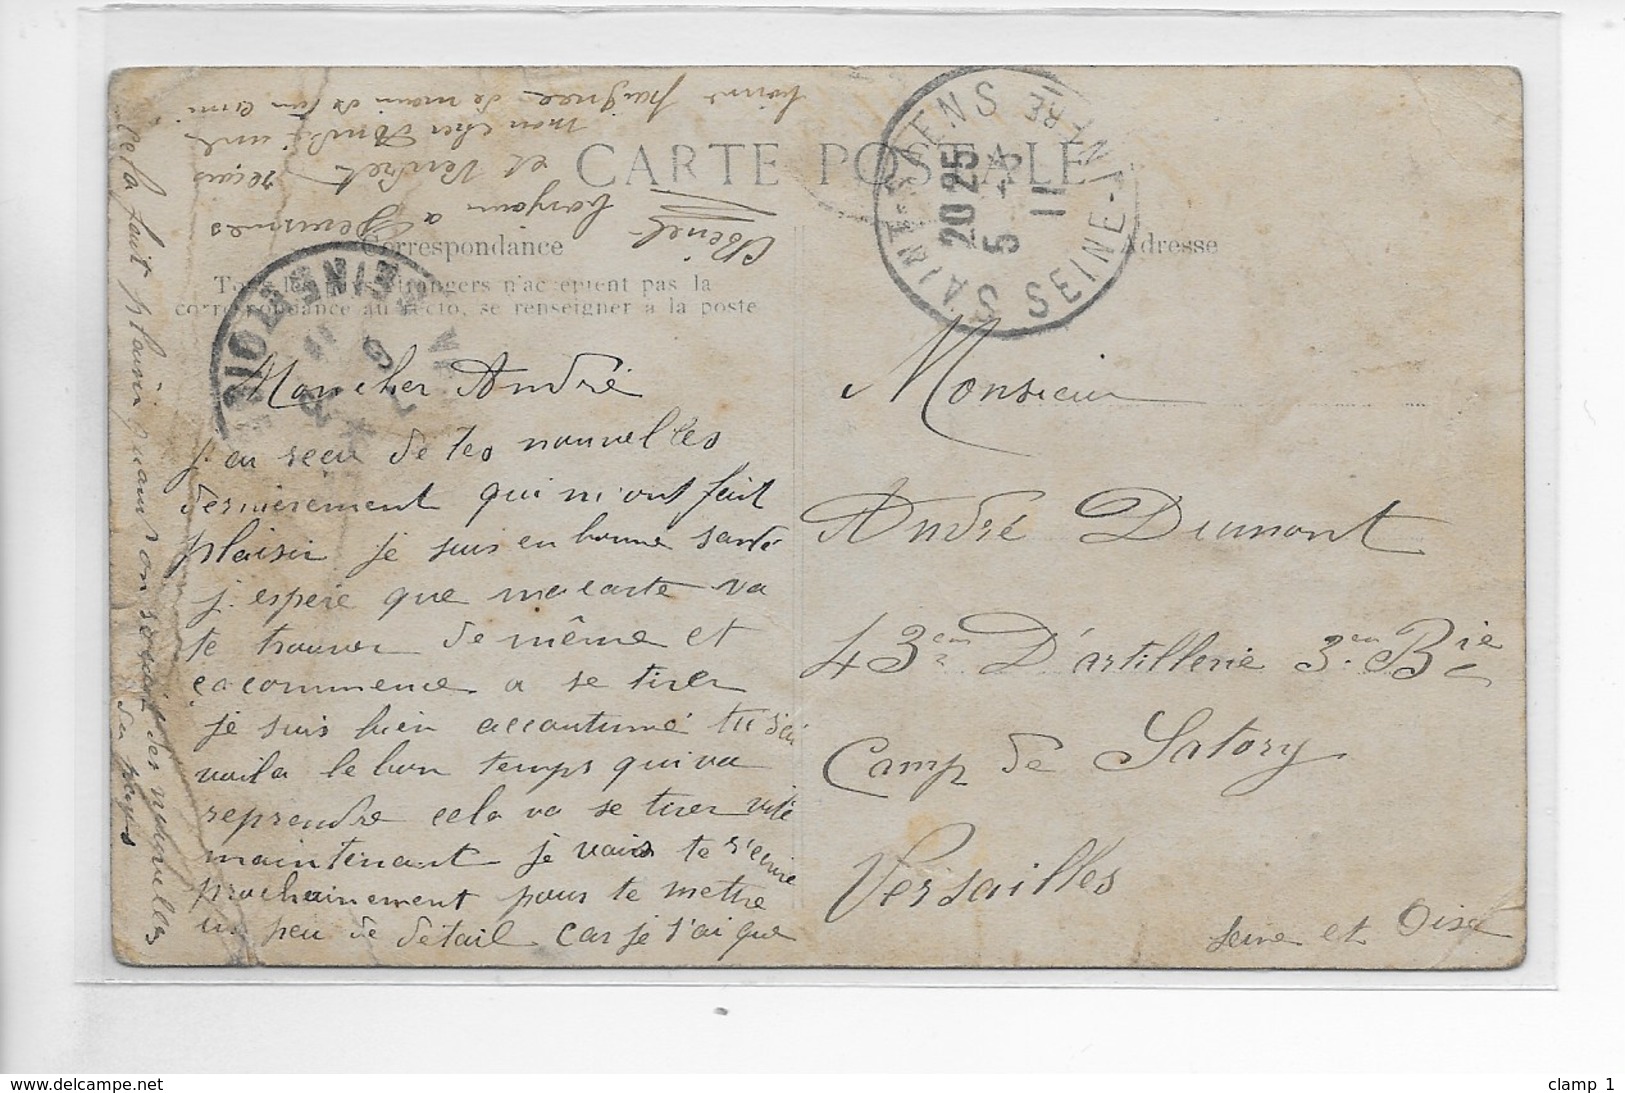 CARTE POSTALE
Correspondance
Adresse
Tous les pays étrangers n'acceptent pas la
correspondance au recto, se renseigner à la poste
SAINT-SAENS
20 25
5 - 3
11
SEINE-INFRE
Mon cher André
J'ai reçu de tes nouvelles
dernierement qui m'ont fait
plaisir je suis en bonne santé
j'espère que ma carte va
te trouver de même et
ca commence a se tirer
je suis bien accoutumé tu sai
voila le bon temps qui va
reprendre cela va se tirer vite
maintenant je vais te r'ecrire
prochainement pour te mettre
un peu de détail car je s'ai que
cela fait plaisir quant on reçoit des nouvelles
du pays
bonjour a
et
reçois
mon cher André une
bonne poignée de main de ton ami
Monsieur
André Dumont
43eme D'artillerie 3.em Bie
Camp de Satory
Versailles
Seine et Oise
www.delcampe.net
clamp 1